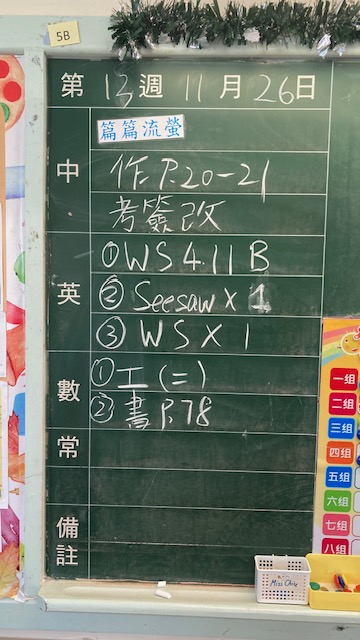 5B
第13週11月26日
篇篇流螢
中 作P.20-21
考簽改
①WS 4.11 B
英 ②Seesaw x 1
③WS X 1
數 ①工(二)
②書P.78
常
備註
一組
二組
三組
四組
五組
六組
七組
八組